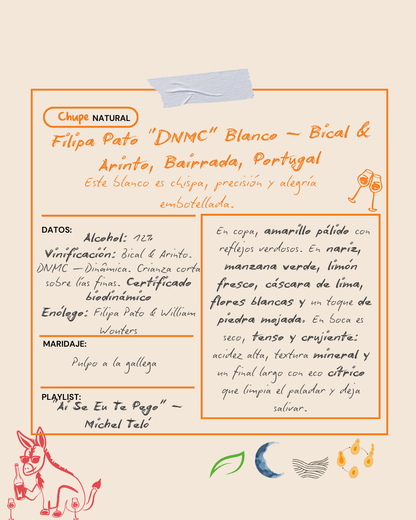 Chupe NATURAL
Filipa Pato "DNMC" Blanco – Bical &
Arinto, Bairrada, Portugal
Este blanco es chispa, precisión y alegría
embotellada.
DATOS:
Alcohol: 12%
Vinificación: Bical & Arinto.
DNMC –Dinâmica. Crianza corta
sobre lías finas. Certificado
biodinámico
Enólogo: Filipa Pato & William
Wouters
MARIDAJE:
Pulpo a la gallega
PLAYLIST:
"Ai Se Eu Te Pego" –
Michel Teló
En copa, amarillo pálido con
reflejos verdosos. En nariz,
manzana verde, limón
fresco, cáscara de lima,
flores blancas y un toque de
piedra mojada. En boca es
seco, tenso y crujiente:
acidez alta, textura mineral y
un final largo con eco cítrico
que limpia el paladar y deja
salivar.